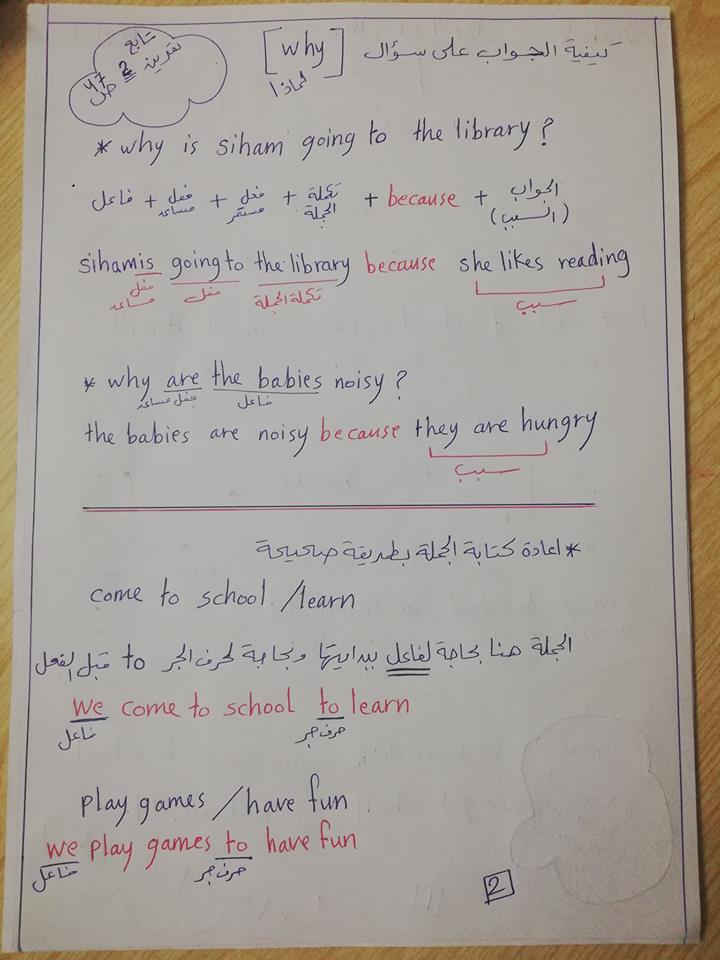 كيفية الجواب على سؤال [why]
لماذا
تابع
تمرين 2 ص 47
* why is siham going to the library?
فاعل + فعل مساعد + فعل مستمر + تكملة الجملة + because + الجواب (السبب)
siham is going to the library because she likes reading
فعل مساعد فعل تكملة الجملة سبب
* why are the babies noisy?
فعل مساعد فاعل
the babies are noisy because they are hungry
سبب
* اعادة كتابة الجملة بطريقة صحيحة
come to school /learn
الجملة هنا بحاجة لفاعل ببدايتها وبحاجة لحرف الجر to قبل الفعل
we come to school to learn
فاعل حرف جر
play games /have fun
we play games to have fun
فاعل حرف جر
2